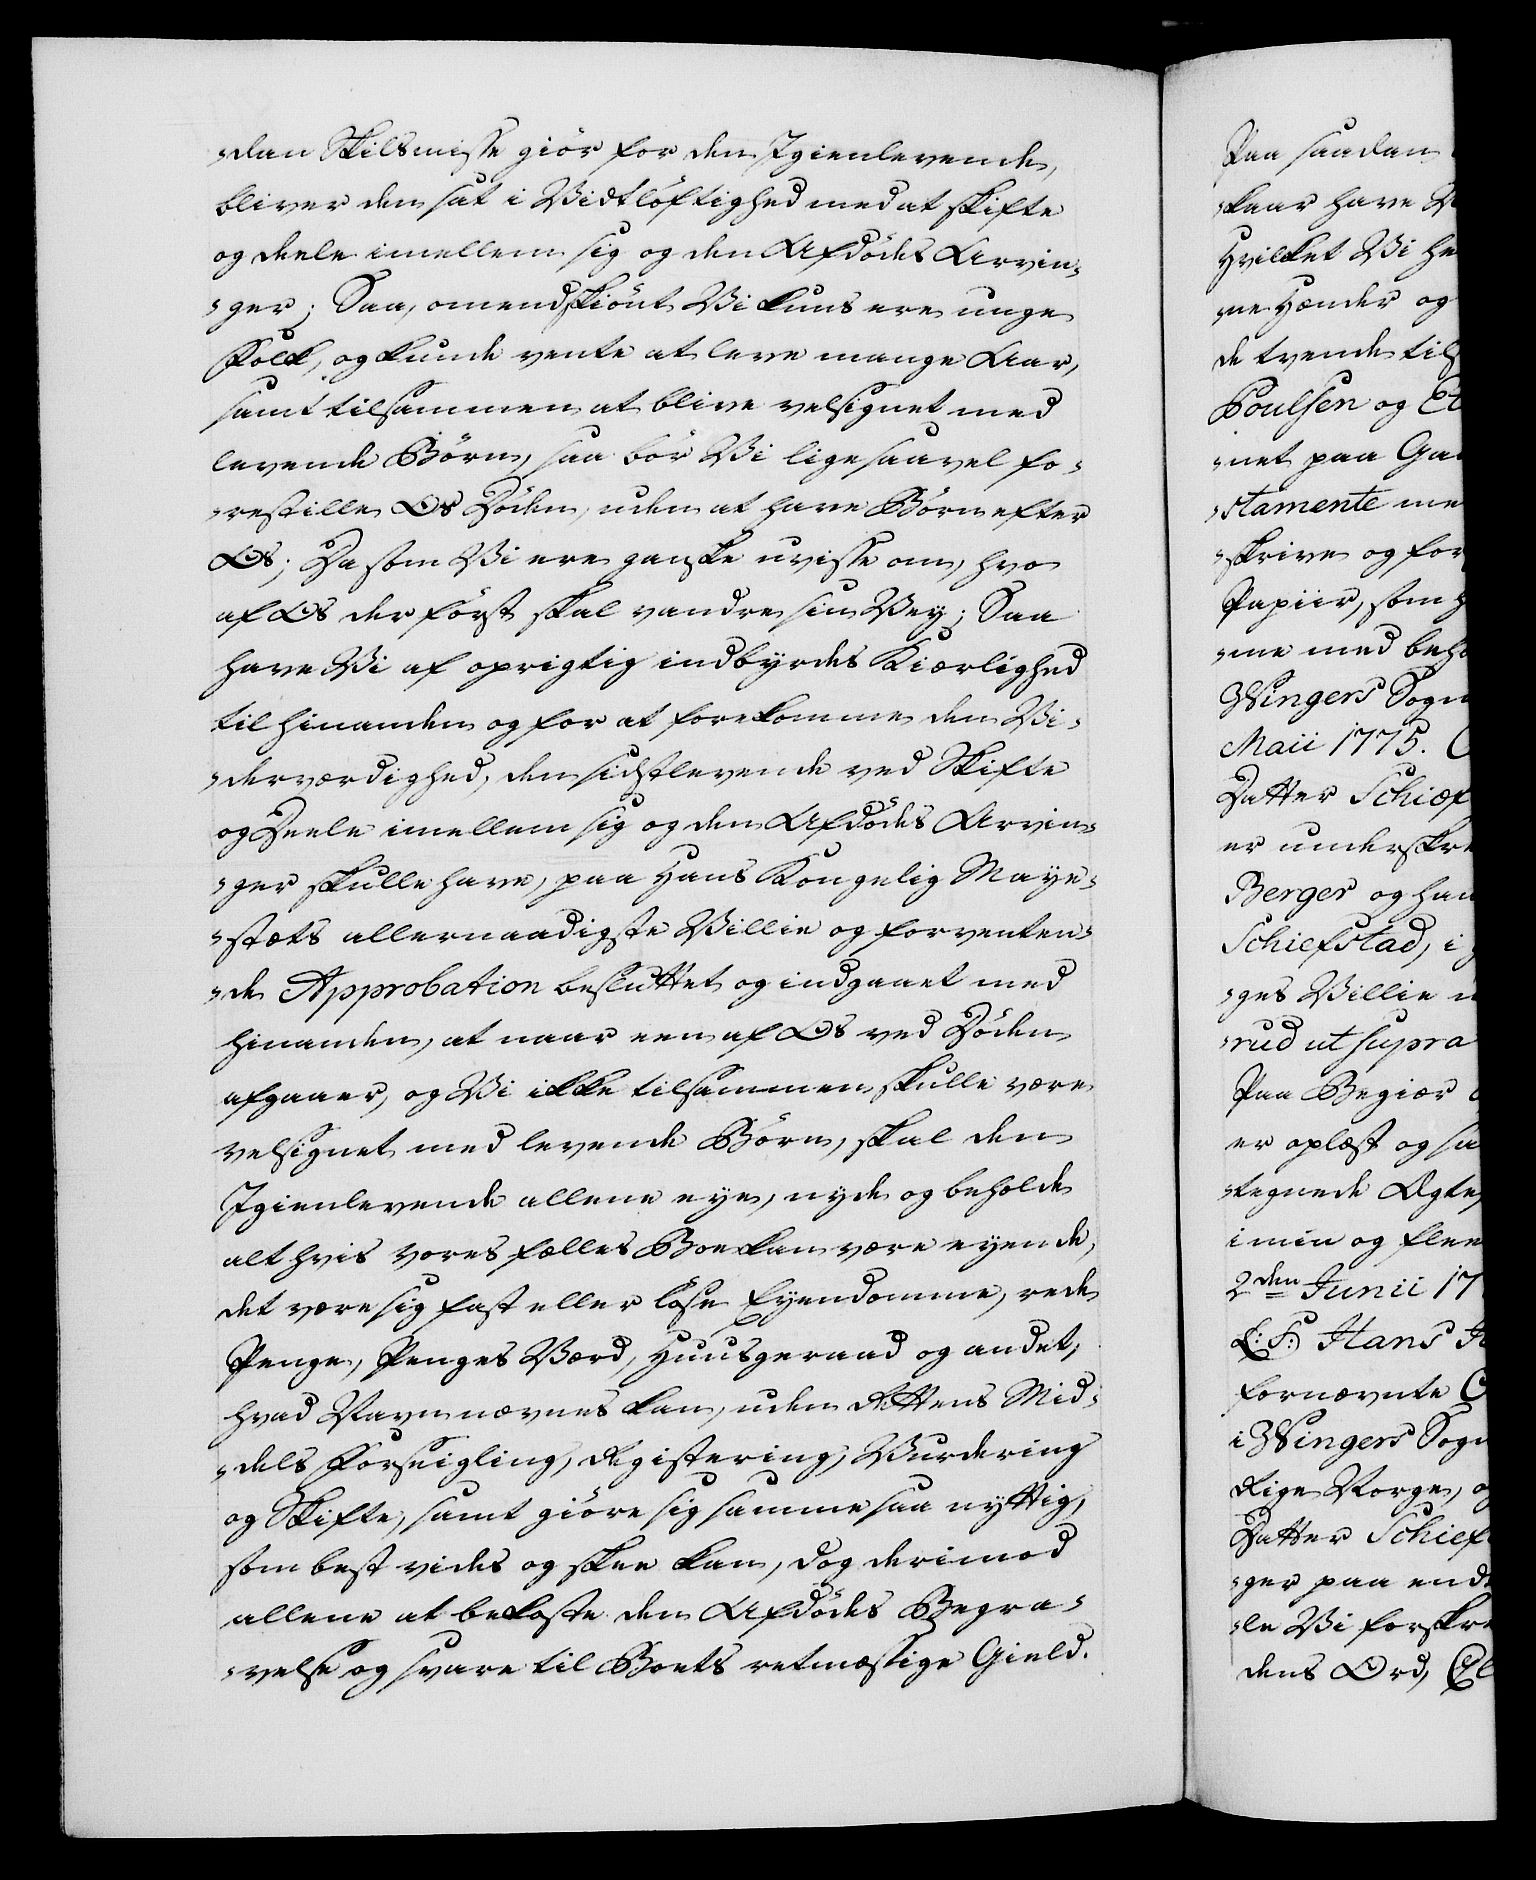 -dan Skilsmisse giör for den Igienlevende,
bliver den sat i Vidtløftighed med at skifte
og deele imellem sig og den Afdödes Arvin-
-ger; Saa, omendskiönt Vi kuns ere unge
Folk, og kunde vente at leve mange Aar,
samt tilsammen at blive velsignet med
levende Börn, saa bör Vi ligesaavel fo-
-restille Os Döden, uden at have Börn efter
Os; Da som Vi ere ganske uvisse om, hvo
af Os der först skal vandre sin Vey; Saa
have Vi af oprigtig indbyrdes Kiærlighed
til hinanden og for at forekomme den Vi-
-derværdighed, den sidstlevende ved Skifte
og Deele imellem sig og den Afdödes Arvin-
-ger skulle have, paa Hans Kongelig Maye-
-stæts allernaadigste Villie og forventen-
-de Approbation besluttet og indgaaet med
hinanden, at naar een af Os ved Döden
afgaaer, og Vi ikke tilsammen skulle være
velsignet med levende Börn, skal den
Igienlevende allene eye, nyde og beholde
alt hvis vores fælles Boe kan være eyende,
det være sig fast eller löse Eyendomme, rede
Penge, Penges Værd, Huusgeraad og andet,
hvad Navn nævnes kan, uden Rettens Mid-
-dels Forseigling, Registering, Vurdering
og Skifte, samt giöre sig samme saa nyttig,
som best vides og skee kan, dog derimod
allene at bekoste den Afdödes Begra-
-velse og svare til Boets retmæssige Gield.
Paa saadan
-kaar have
Hvilket Vi
-ne Hænder og
de tvende
Poulsen og
-net paa
-stamente
-skrive og
Papiir, som
-me med
Wingers
Maii 1775.
Datter
er
Berger og
Schiefstad, i
-ges Villie
-rud ut supra
Paa Begiær
er oplæst og
-tegnede
i min og
2den Junii
L: S: Hans
fornævnte
i Wingers
Rige Norge,
Datter
-ger paa
-le Vi
dens Ord,